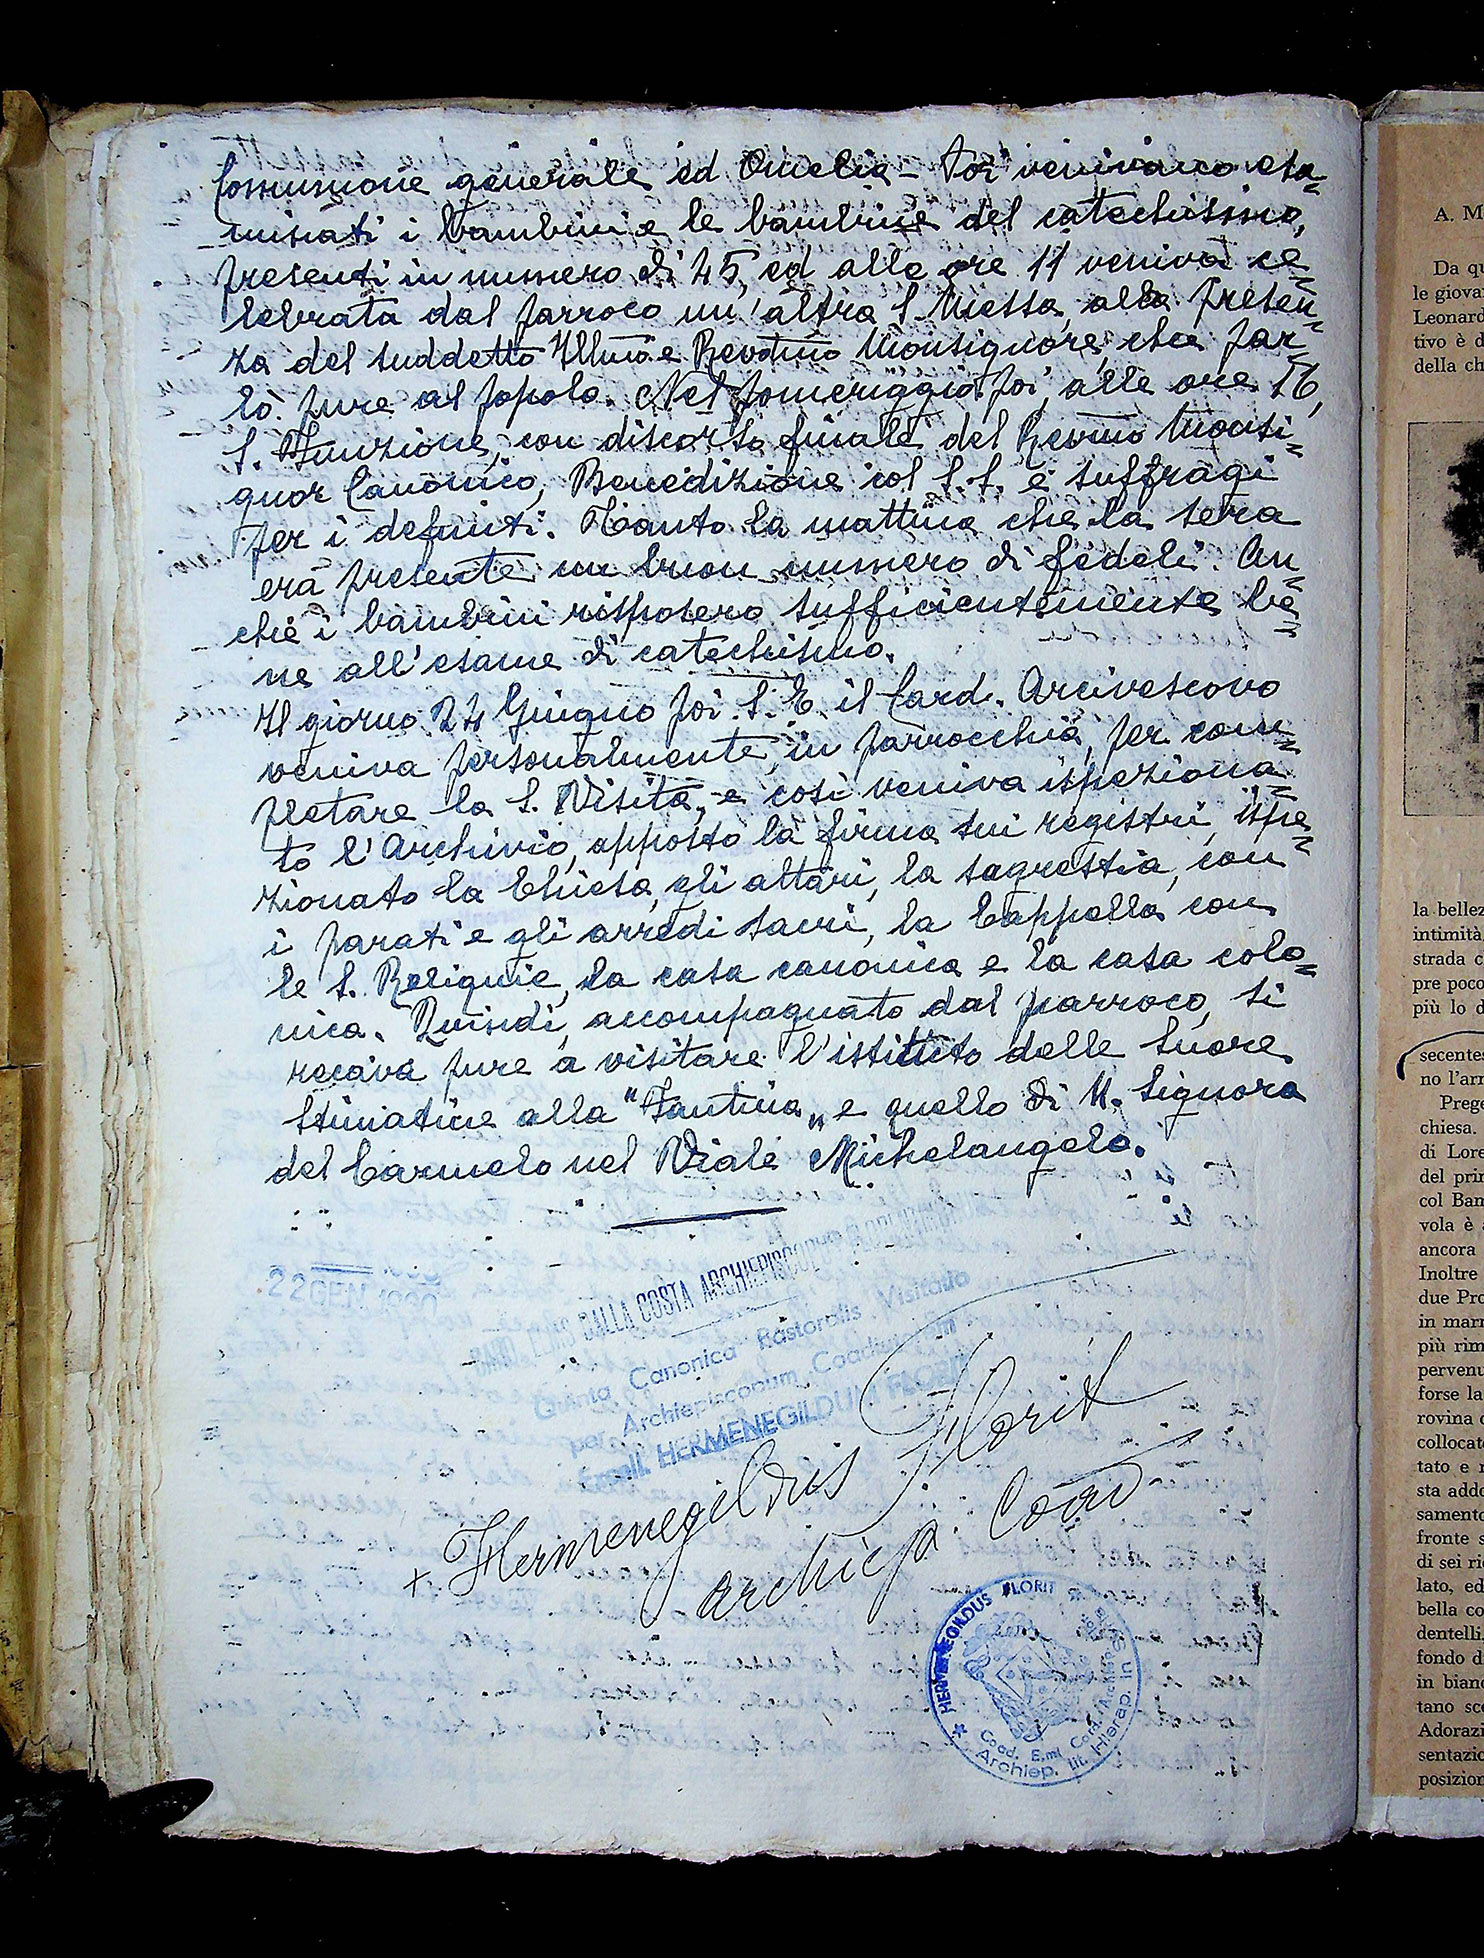 Comunione generale ed Omelia - Poi venivano esa=
minati i bambini e le bambine del catechismo,
presenti in numero di 45, ed alle ore 11 veniva ce=
lebrata dal parroco un'altra S. Messa, alla presen=
za del suddetto Illmo e Revdmo Monsignore, che par=
lò pure al popolo. Nel pomeriggio poi, alle ore 16,
S. Funzione, con discorso finale del Revmo Monsi=
gnor Canonico, Benedizione col S.S. e suffragi
per i defunti. Tanto la mattina che la sera
era presente un buon numero di fedeli. An=
che i bambini risposero sufficientemente be=
ne all'esame di catechismo.
Il giorno 24 Giugno poi S.E. il Card. Arcivescovo
veniva personalmente in parrocchia, per com=
pletare la S. Visita, e così veniva ispeziona=
to l'Archivio, apposto la firma sui registri, ispe=
zionato la Chiesa, gli altari, la sagrestia, con
i parati e gli arredi sacri, la Cappella con
le S. Reliquie, la casa canonica e la casa colo=
nica. Quindi, accompagnato dal parroco, si
recava pure a visitare l'istituto delle Suore
Stimatine alla "Fantina" e quello di N. Signora
del Carmelo nel Viale Michelangelo.
22 GEN. 1960
DALLA COSTA ARCHIEPISCOPUS
Quinta Canonica Pastoralis Visitatio
per Archiepiscopum Coadiutorem
Excell. HERMENEGILDUM FLORIT
+ Hermenegildus Florit
archiep. Coad
* HERMENEGILDUS FLORIT *
Coad. E.mi Card. Archiep.
Archiep. tit. Hierap. in
A. M
Da qu
le giova
Leonard
tivo è d
della ch
la bellez
intimità
strada c
pre poco
più lo d
secentes
no l'arr
Prege
chiesa.
di Lore
del prin
col Ban
vola è
ancora
Inoltre
due Pro
in marr
più rim
pervenu
forse la
rovina
collocat
tato e r
sta addo
samento
fronte s
di sei ri
lato, ed
bella co
dentelli
fondo d
in bianc
tano sce
Adorazi
sentazio
posizion